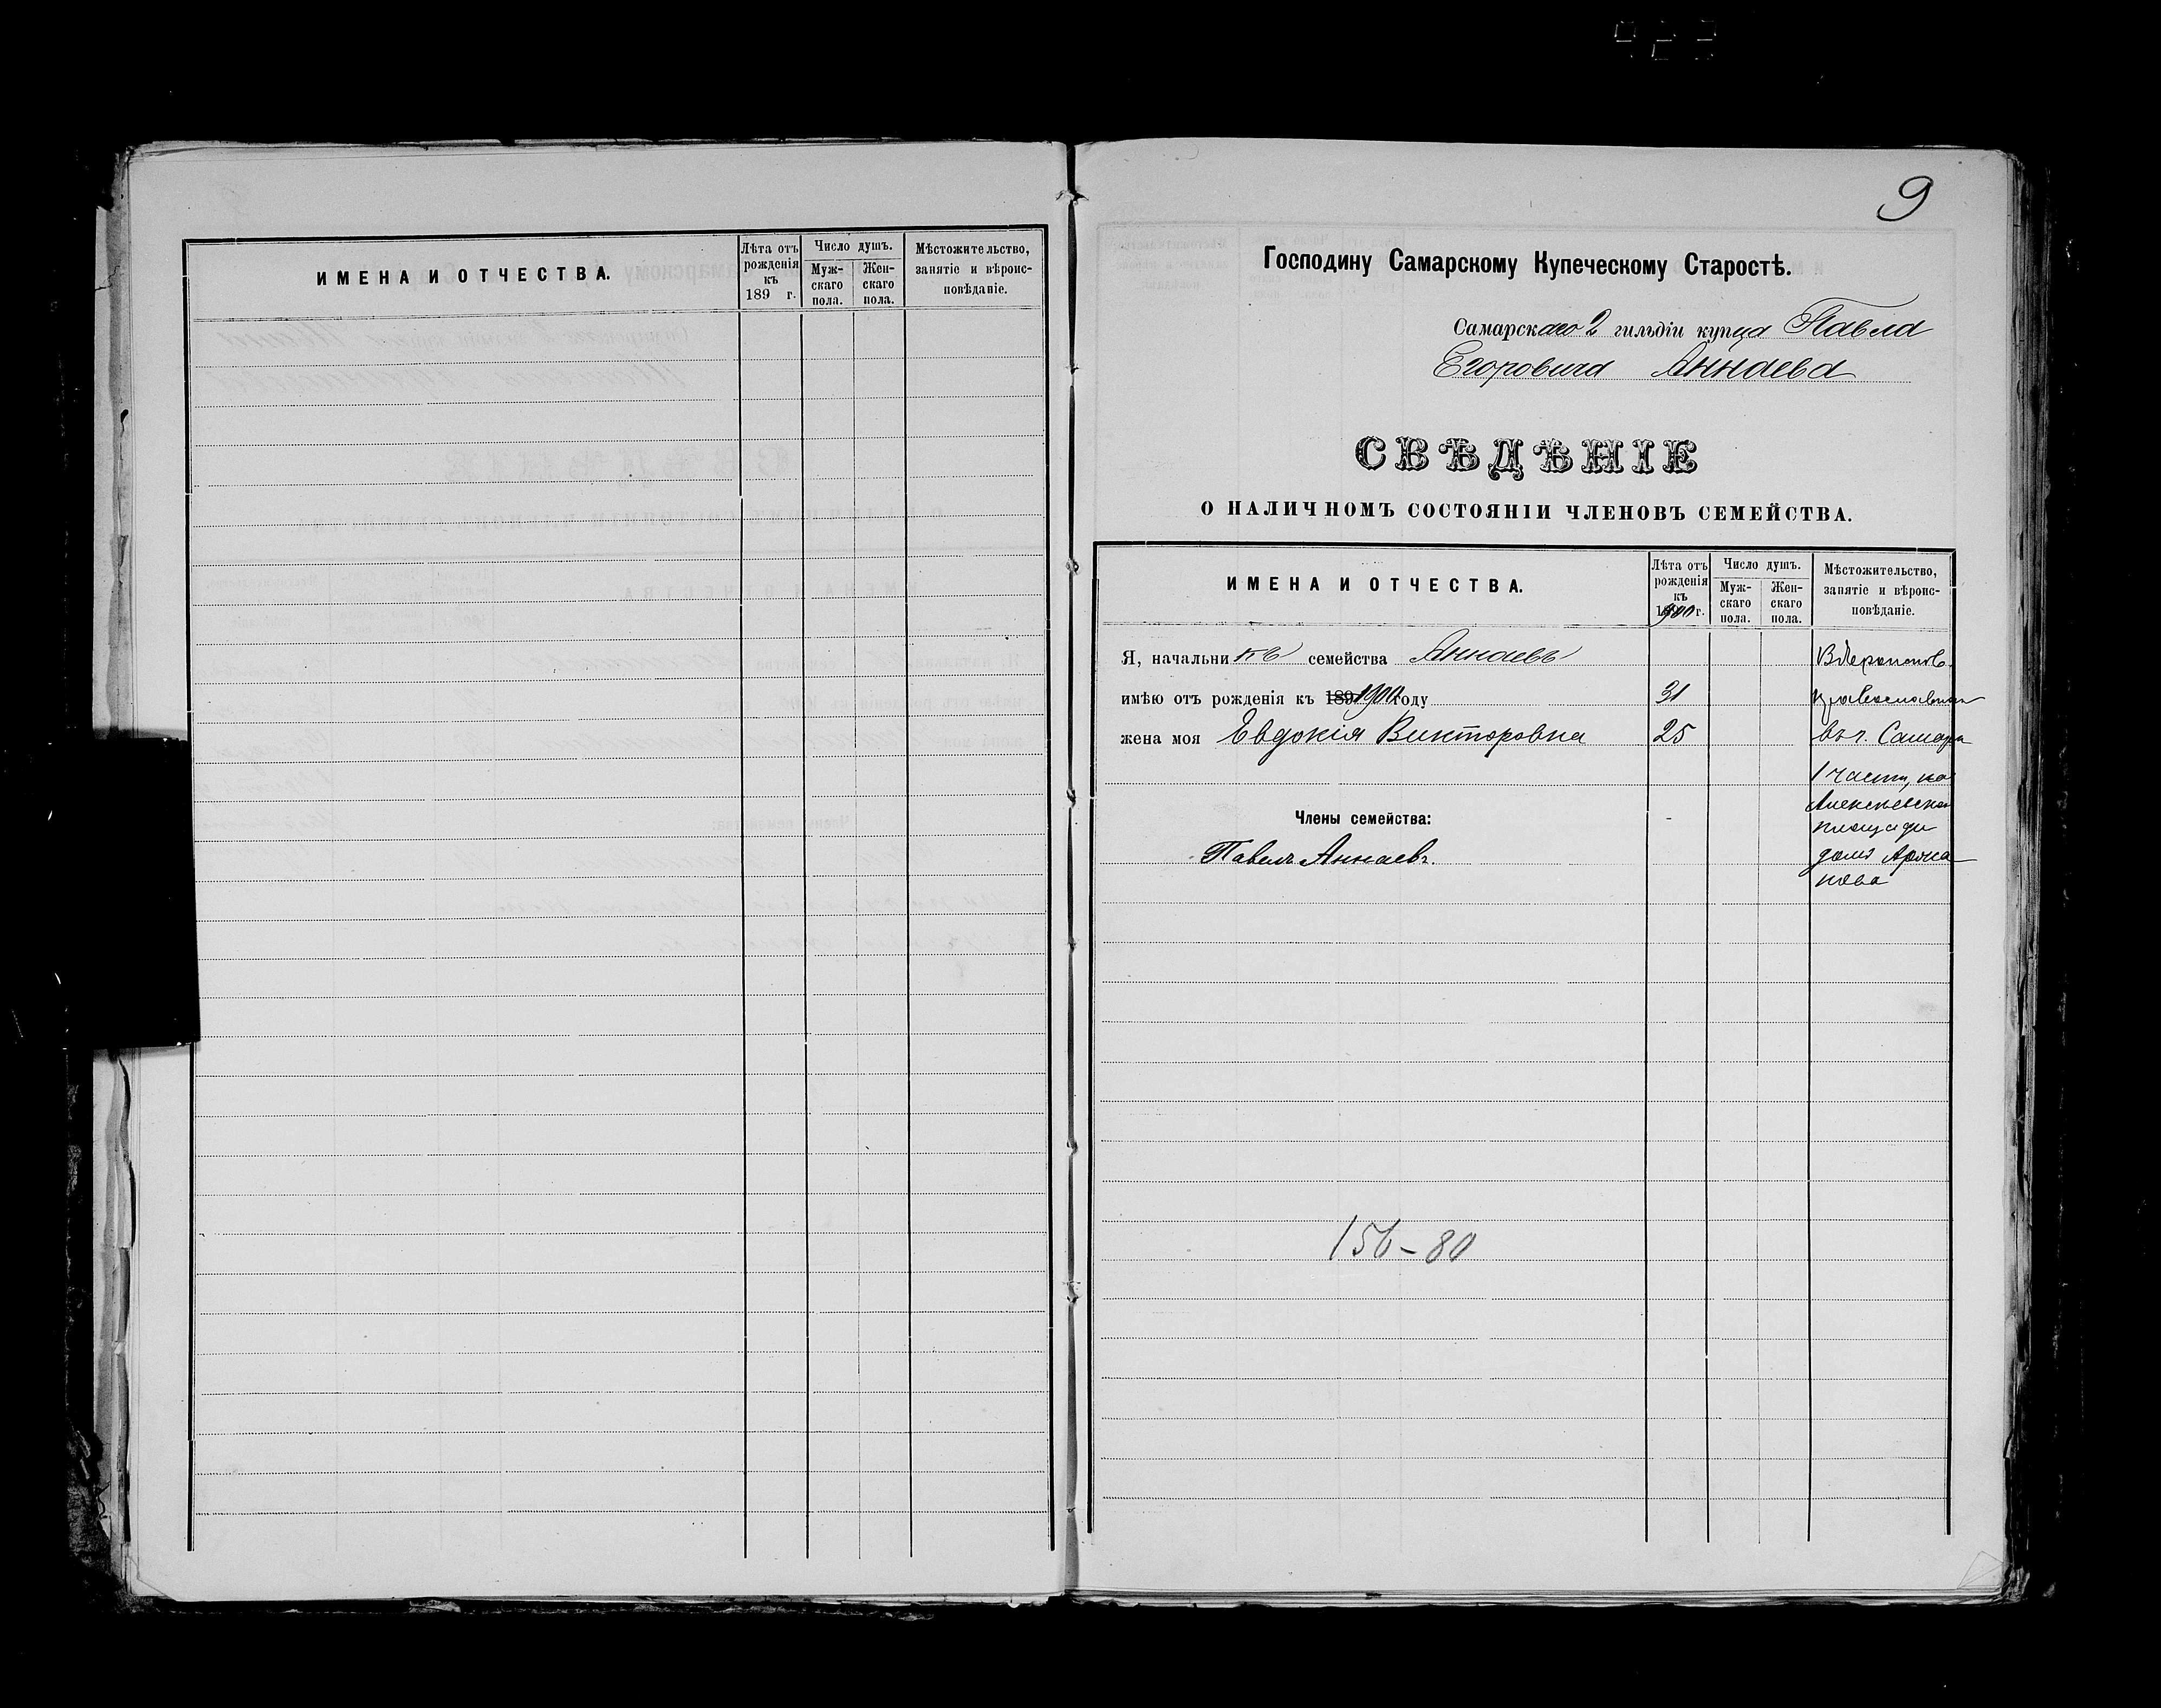 ИМЕНА И ОТЧЕСТВА.
Лѣта отъ рожденія къ 189 г.
Число душъ.
Мужскаго пола.
Женскаго пола.
Мѣстожительство, занятіе и вѣроисповѣданіе.
9
Господину Самарскому Купеческому Старостѣ.
Самарскаго 2 гильдіи купца Павла
Егоровича Аннаева
СВѢДѢНІЕ
О НАЛИЧНОМЪ СОСТОЯНІИ ЧЛЕНОВЪ СЕМЕЙСТВА.
ИМЕНА И ОТЧЕСТВА.
Лѣта отъ
рожденія
къ
1900 г.
Число душъ.
Муж-
скаго
пола.
Жен-
скаго
пола.
Мѣстожительство,
занятіе и вѣроис-
повѣданіе.
Я, начальникъ семейства Аннаевъ
имѣю отъ рожденія къ 189 1900 году 31 православная
жена моя Евдокія Викторовна 25 въ г. Самара
1 части, на
Алексѣевской
площади
Члены семейства:
Павелъ Аннаевъ. домъ
156-80